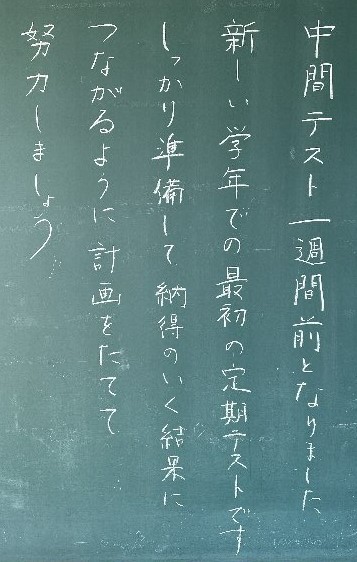 中間テスト一週間前となりました
新しい学年での最初の定期テストです
しっかり準備して納得のいく結果に
つながるように計画をたてて
努力しましょう